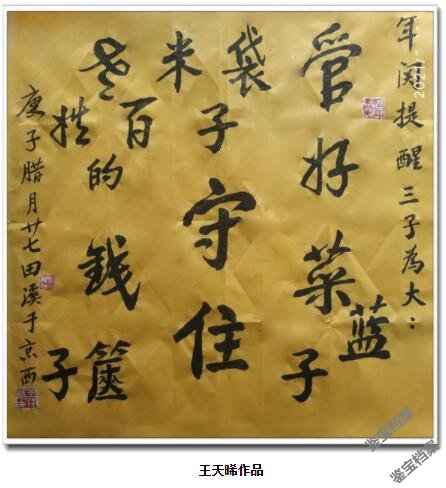 年関提醒三子為大：
管好菜蓝子
米袋子守住
老百姓的錢篋子
庚子腊月廿七田溪于京西
鉴宝档案
鉴宝档案
王天晞作品